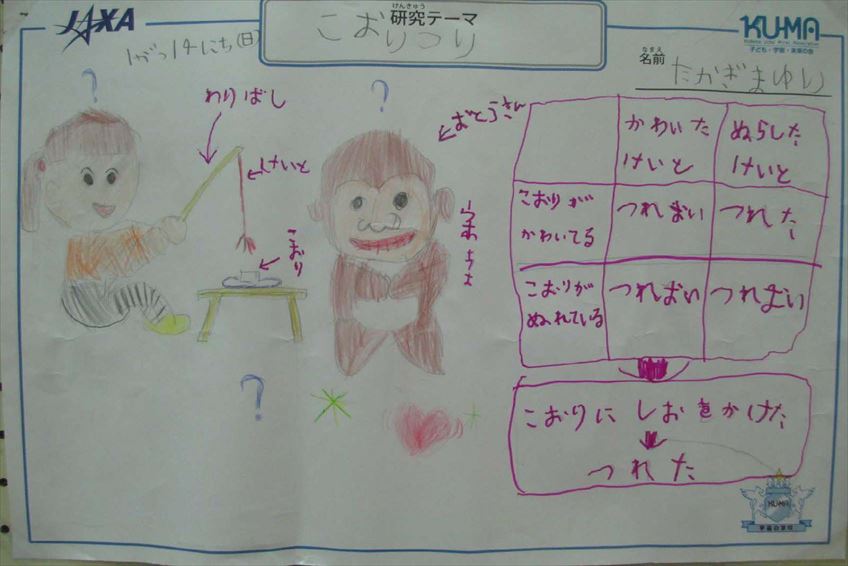 JAXA
けんきゅう
研究テーマ
こおりつり
1がつ14にち(日)
KU-MA
子ども・宇宙・未来の会
なまえ
名前
たかぎまゆり
?
わりばし
けいと
こおり
?
おとうさん
?
かわいた
けいと
ぬらした
けいと
こおりが
かわいてる
つれない
つれた
こおりが
ぬれている
つれない
つれない
こおりにしおをかけた
つれた
KU-MA
宇宙の学校